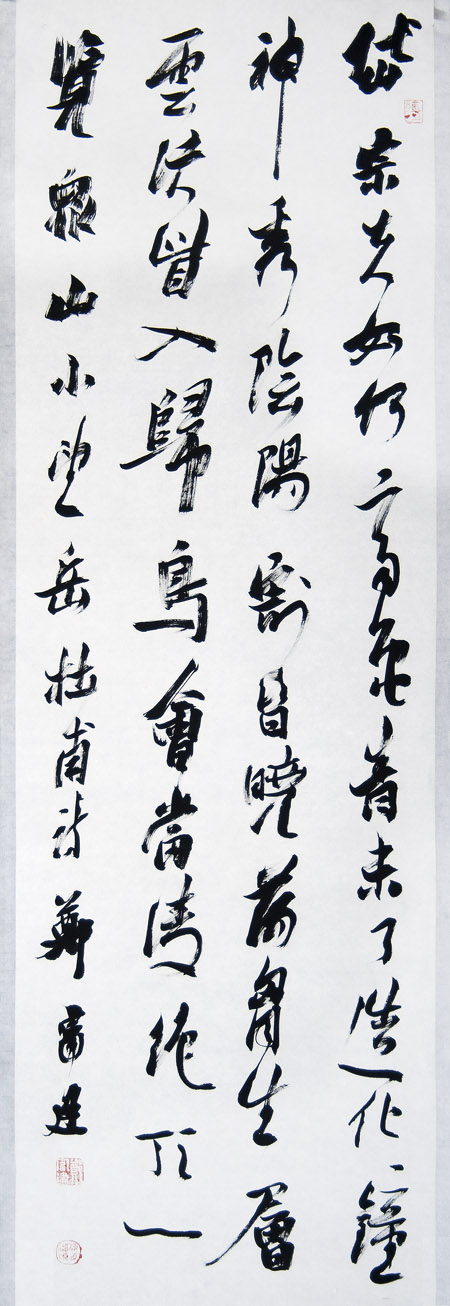 岱宗夫如何齊魯青未了造化鐘
神秀陰陽割昏曉蕩胷生層
雲決眥入歸鳥會當凌絕頂一
覽眾山小望岳杜甫詩鄭建